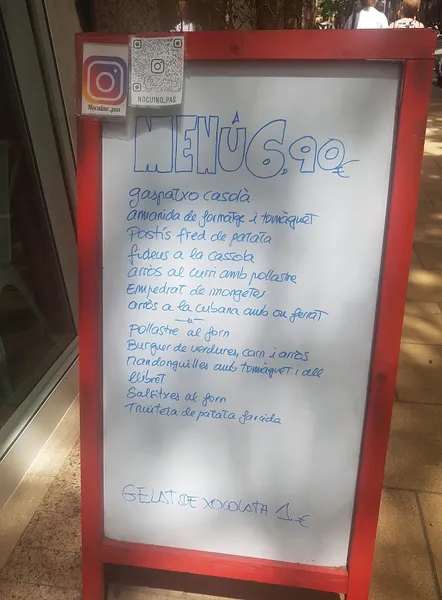 Nocuino_pas
NOCUINO_PAS
MENÚ 6,90€
gaspatxo casolà
amanida de formatge i tomàquet
Pastís fred de patata
fideus a la cassola
arròs al curri amb pollastre
Empedrat de mongetes
arròs a la cubana amb ou ferrat
Pollastre al forn
Burguer de verdures, carn i arròs
Mandonguilles amb tomàquet i all
llibret
Salsitxes al forn
Truiteta de patata farcida
GELAT DE XOCOLATA 1€